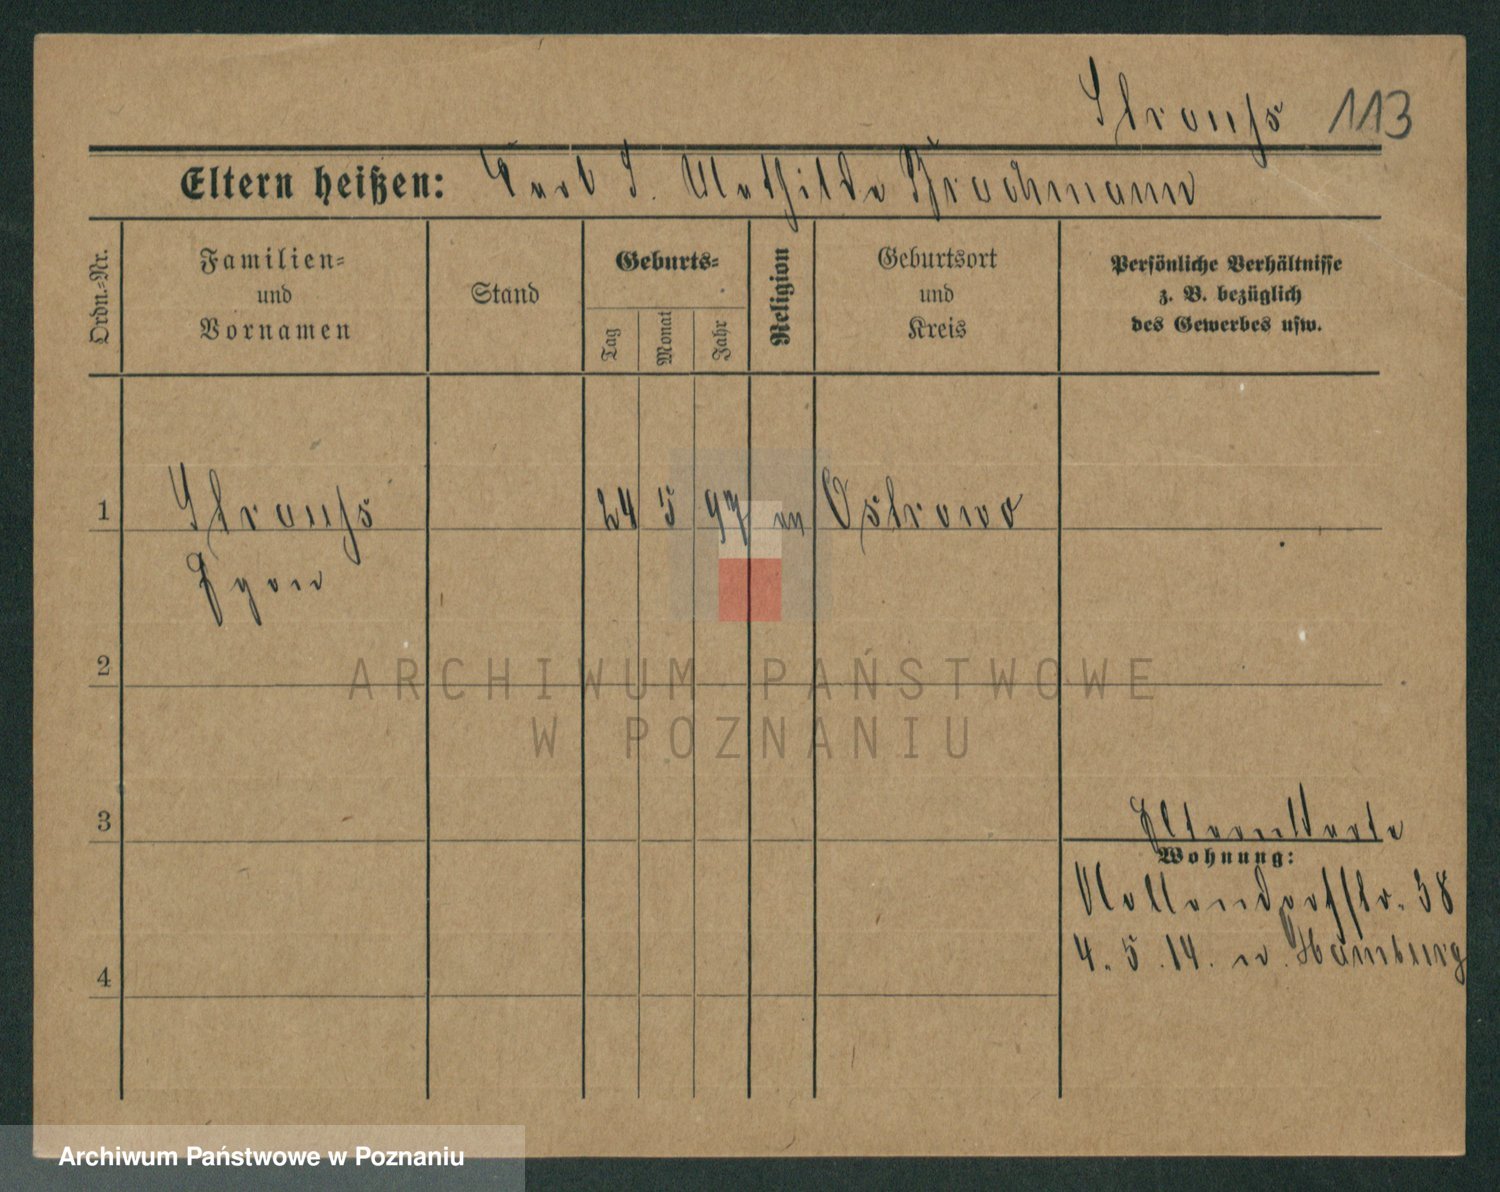 Strauss 113
Eltern heißen: Karl S. Mathilde Brachmann
Ordn.-Nr.
Familien-
und
Vornamen
Stand
Geburts-
Tag
Monat
Jahr
Religion
Geburtsort
und
Kreis
Persönliche Verhältnisse
z. B. bezüglich
des Gewerbes usw.
1 Strauss 24 5 97 Ostrowo
Egon
2
ARCHIWUM PAŃSTWOWE
W POZNANIU
3 Elternkarte
Wohnung:
Nollendorfstr. 38
4. 5. 14. n. Hamburg
4
Archiwum Państwowe w Poznaniu